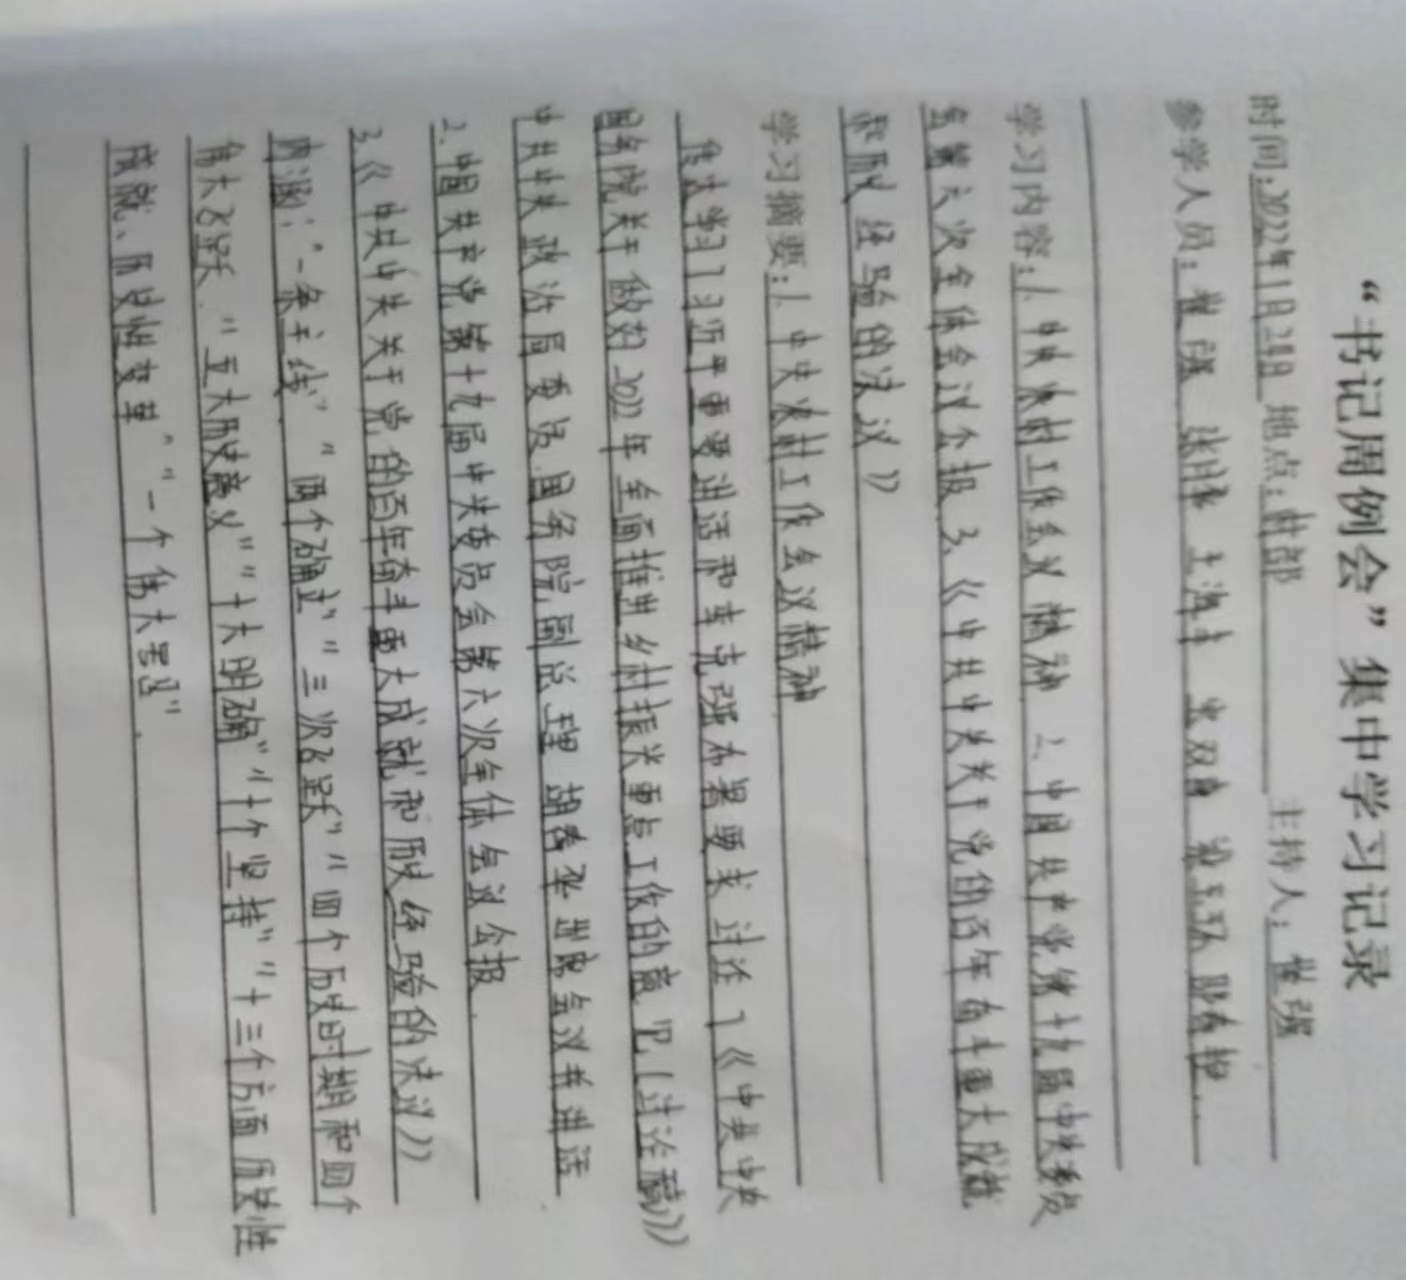 “书记周例会”集中学习记录
时间:2022年1月28日 地点:村部 主持人:崔强
参学人员:崔强 张月华 王海丰
学习内容:1.中央农村工作会议精神 2、中国共产党第十九届中央委员
会第六次全体会议公报 3、《中共中央关于党的百年奋斗重大成就
和历史经验的决议》
学习摘要:1.中央农村工作会议精神
传达学习了习近平重要讲话和李克强布署要求 讨论了《中共中央
国务院关于做好2022年全面推进乡村振兴重点工作的意见(讨论稿)》
中共中央政治局委员.国务院副总理 胡春华出席会议并讲话
2.中国共产党第十九届中央委员会第六次全体会议公报.
3.《中共中央关于党的百年奋斗重大成就和历史经验的决议》
内涵:“一条主线”“两个确立”“三次飞跃”“四个历史时期和四个
伟大飞跃”“五大历史意义”“十大明确”“十个坚持”“十三个方面历史性
成就、历史性变革”“一个伟大号召”.